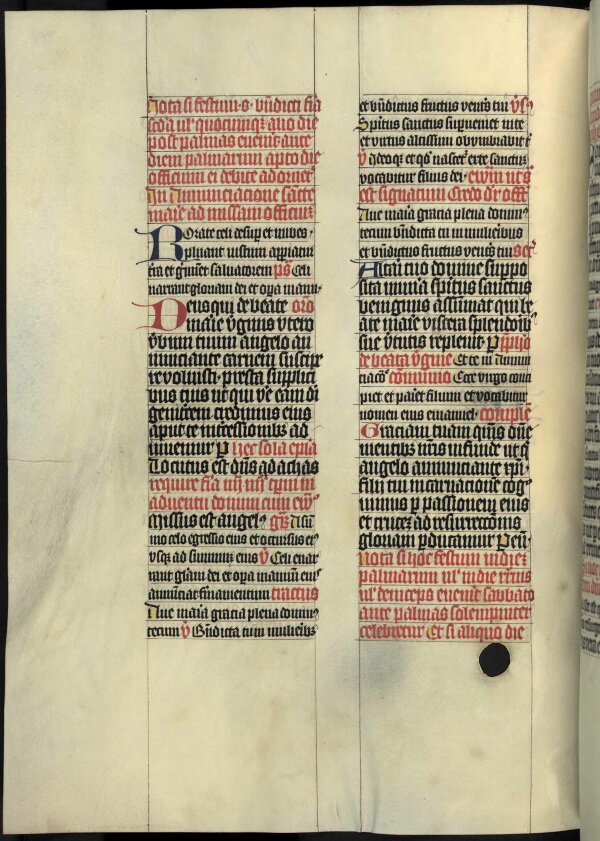 Nota si festum s. bn̄dicti fīa
scd̄a ul' quocumqꝫ quo die
post palmas euen̄it ante
diem palmarum capto die
officium et debite adornet̄
In Annunciacione sancte
marie ad missam officiū
Rorate celi desup̄ et nubes
pluuant iustum appiatur
t̄ra et gm̄et saluatorem ps̄ Celi
narrant gloriam dei et oꝑa manu
Deus qui de beate oro
marie v̄ginis vtero
v̄bum tuum angelo an
nunciante carnem suscipe
re voluisti presta supplici
bus tuis ut qui ve eam dei
genitricem credimus eius
apud te in̄cessionibꝫ ad
iuuemur P hec sola ep̄ia
Locutus est dn̄s ad achas
require
aduentu domini cum ew̄
Missus est angel' gr̄ A sum
mo celo egressio eius et occursus ei'
vsqꝫ ad summū eius v̄ Celi enar
rant glam dei et oꝑa manuū ei'
annūciat firmamentum tractus
Aue maria gracia plena domin'
tecum v̄ Bn̄dicta tu in mulieribꝫ
et bn̄dictus fructus ventr̄ tui v̄s
Spiritus sanctus supueniet in te
et virtus altissimi obumbrabit t'
v̄ Ideoqꝫ et qd̄ nascet̄ ex te sanctum
vocabitur filius dei ewm̄ ut s̄
est signatum Credo dr̄ off̄
Aue maria gracia plena domin'
tecum bn̄dicta tu in mulieribus
et bn̄dictus fructus ventr̄ tui sec̄
Altari tuo domine suppo
sita munera spiritus sanctus
benignus assumat qui be
ate marie viscera splendoribꝫ
sue v̄tutis repleuit P p̄facio
de beata v̄gine Et te in Annun
ciacōe Communio Ecce virgo conci
piet et pariet filium et vocabitur
nomen eius emanuel Complē
Graciam tuam quūs dn̄e
mentibus nr̄is infunde ut q'
angelo annunciante xp̄i
filii tui incarnacionem cog
nimus p passionem eius
et crucem ad resurrectōnis
gloriam pducamur P eun̄
Nota si hoc festum in die
palmarum ul' in die
ul' deinceps euen̄it sabbato
ante palmas solempniter
celebretur Et si aliquo die